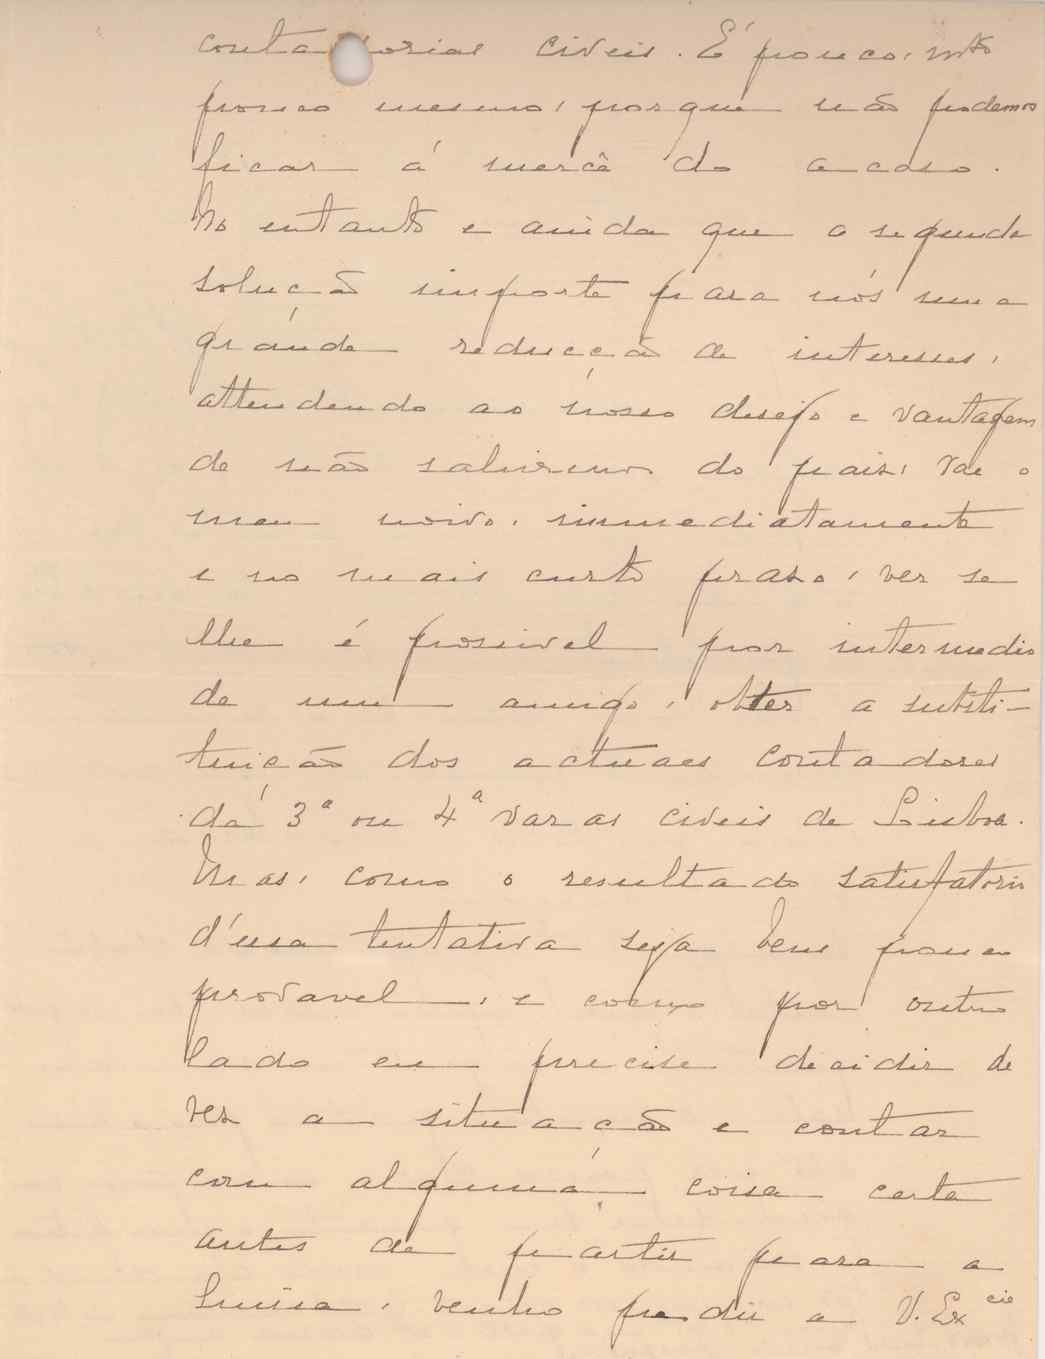 conta orias civeis. É pouco, mto
pouco mesmo, porque não podemos
ficar á mercê do acaso.
No entanto e ainda que a segunda
solução importe para nós uma
grande reducção de interesses,
attendendo ao nosso desejo e vantagem
de não sahirmos do pais, vae o
meu noivo, immediatamente
e no mais curto praso, ver se
lhe é possivel por intermedio
de um amigo, obter a substi-
tuição dos actuaes contadores
da 3ª ou 4ª varas civeis de Lisboa.
Mas, como o resultado satisfatorio
d'essa tentativa seja bem pouco
provavel, e como por outro
lado eu precise decidir de
vez a situação e contar
com alguma coisa certa
antes de partir para a
Suissa, venho pedir a V. Excia